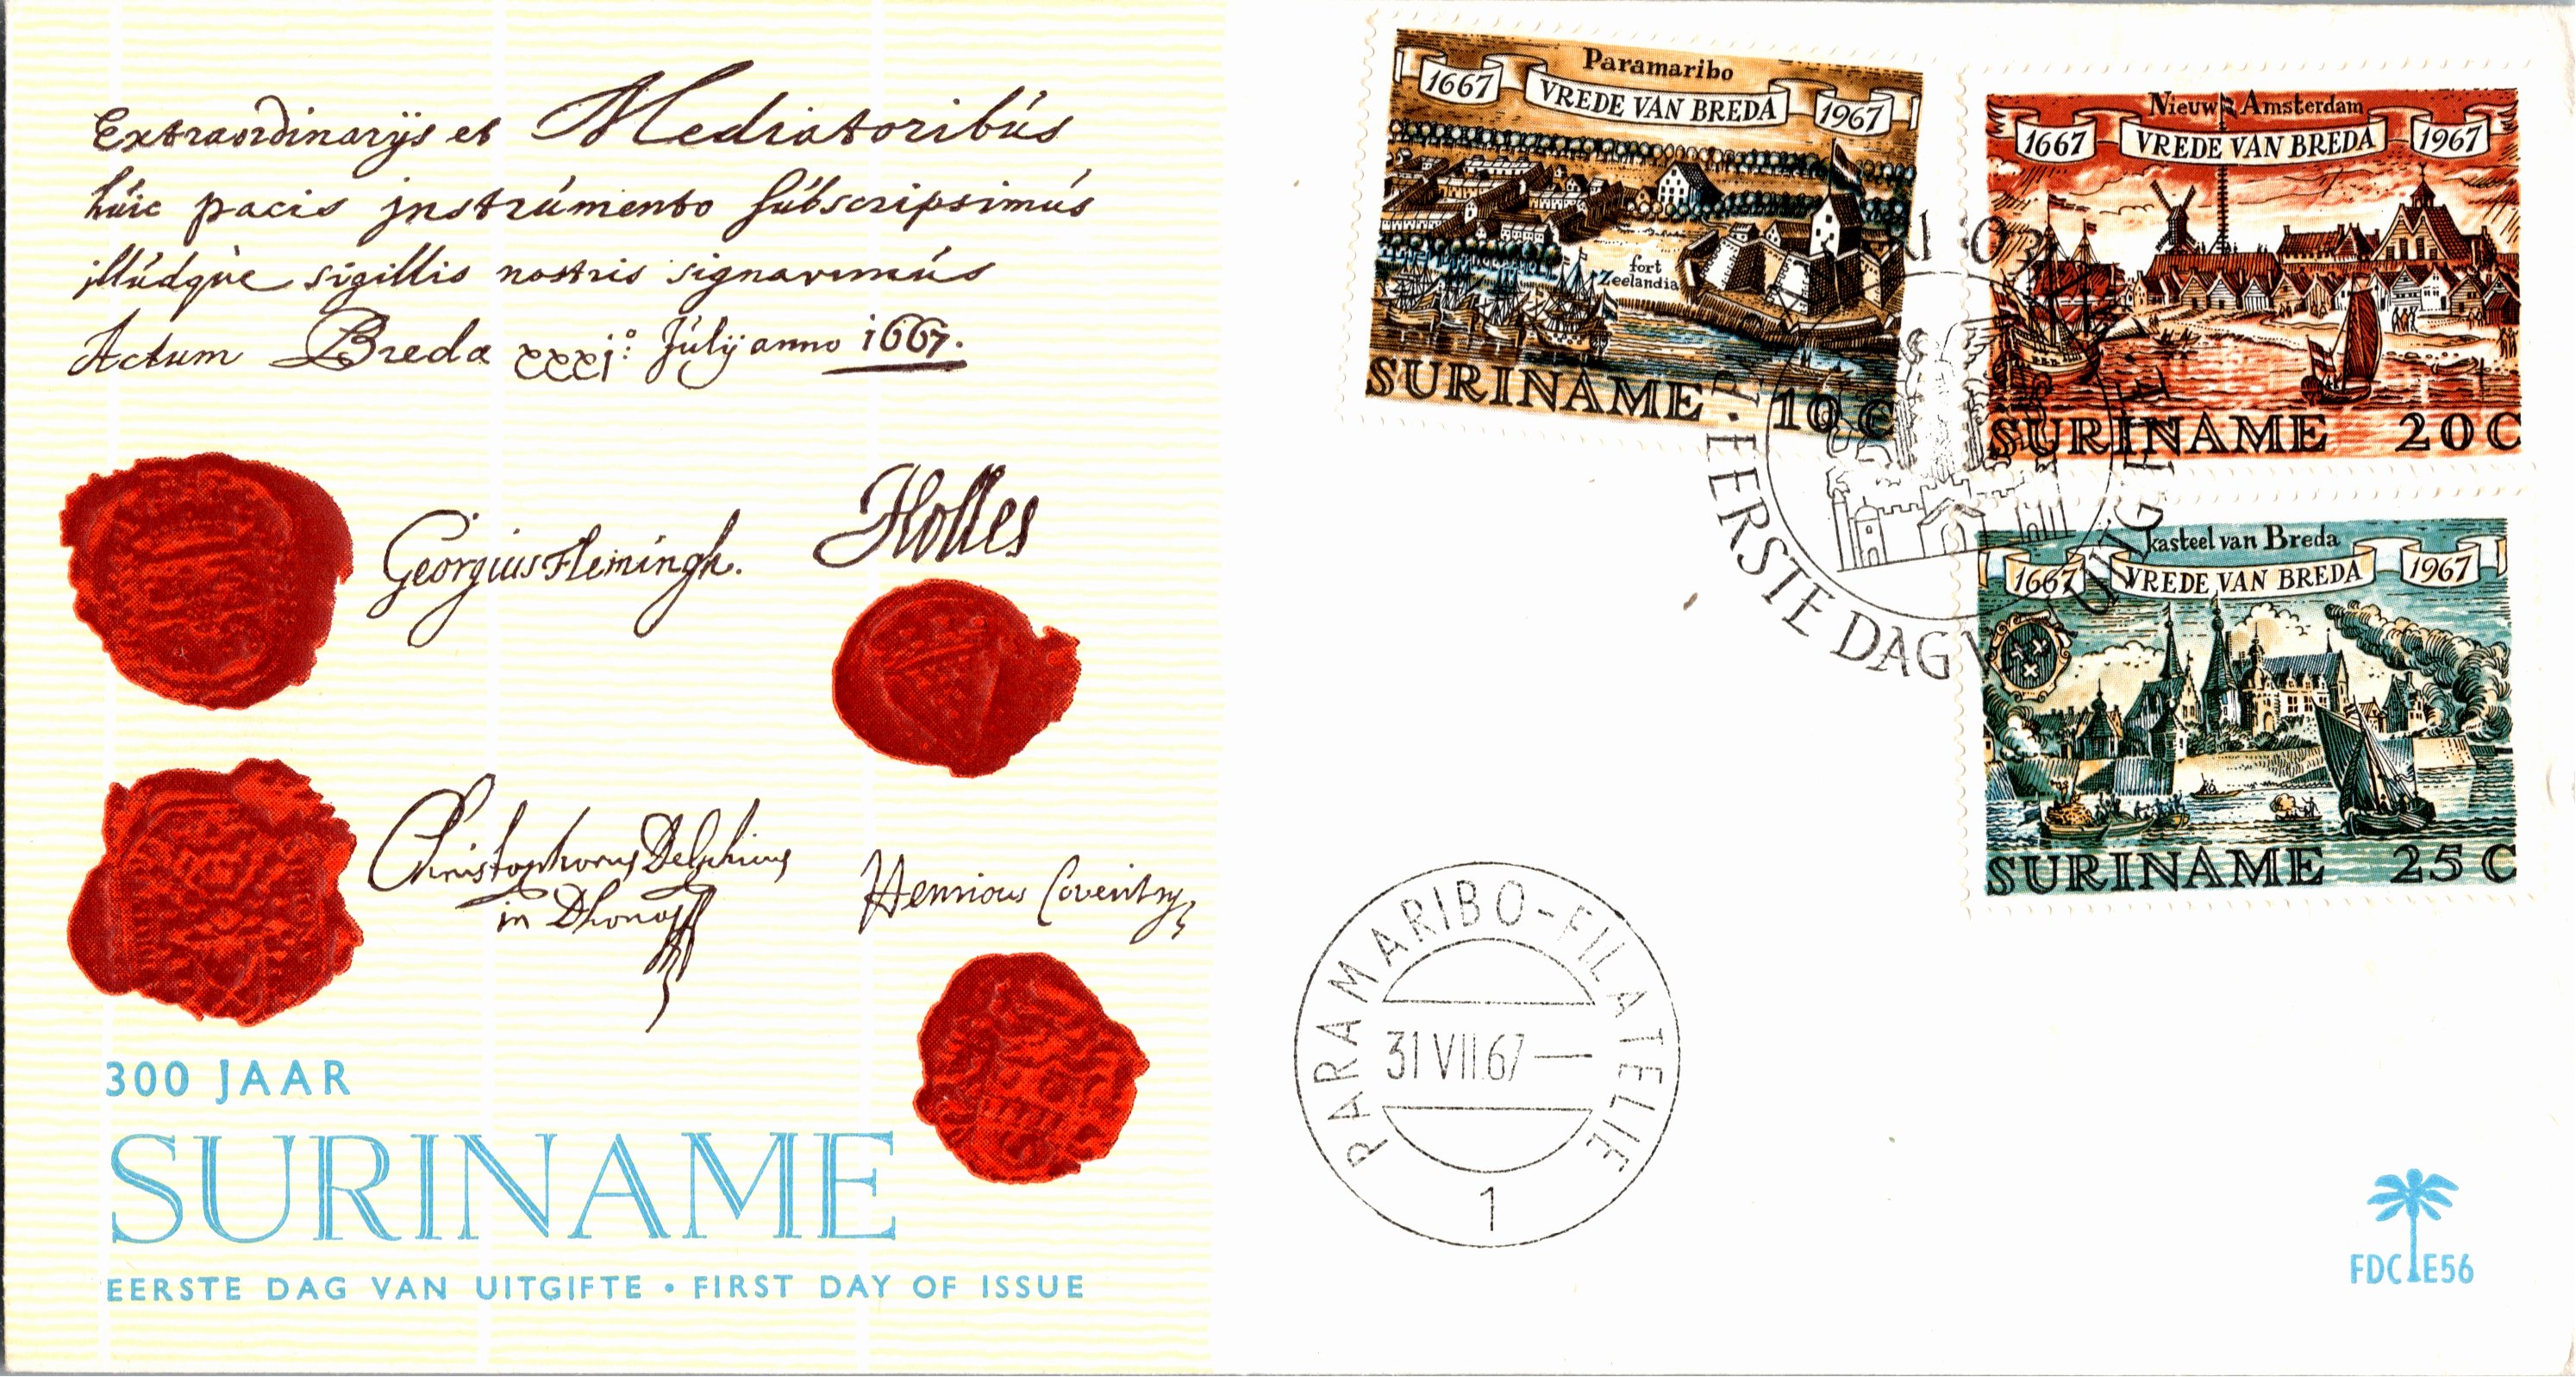 Extraordinarijs et Mediatoribús
húic pacis jnstrúmento súbscripsimús
illúdqúe sigillis nostris signavimús
Actum Breda xxxjº: Júlij anno 1667.
Georgius Flemingh.
Holles
Christophorus Delphicus
in Dhona
Henricus Coventry
300 JAAR
SURINAME
EERSTE DAG VAN UITGIFTE • FIRST DAY OF ISSUE
Paramaribo
1667 VREDE VAN BREDA 1967
fort
Zeelandia
SURINAME 10 C
Nieuw Amsterdam
1667 VREDE VAN BREDA 1967
SURINAME 20 C
kasteel van Breda
1667 VREDE VAN BREDA 1967
SURINAME 25 C
EERSTE DAG
PARAMARIBO-FILATELIE
31 VII.67
1
FDC E56